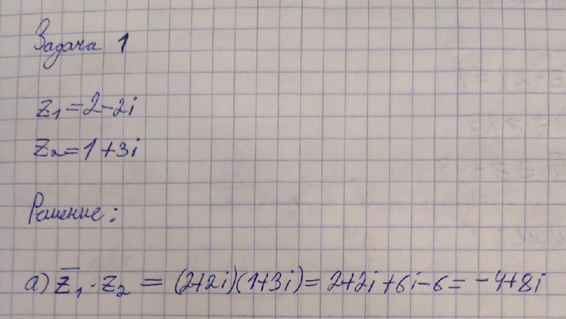 Задача 1
z₁=2-2i
z₂=1+3i
Решение:
а) z̅₁·z₂ = (2+2i)(1+3i)=2+2i+6i-6=-4+8i